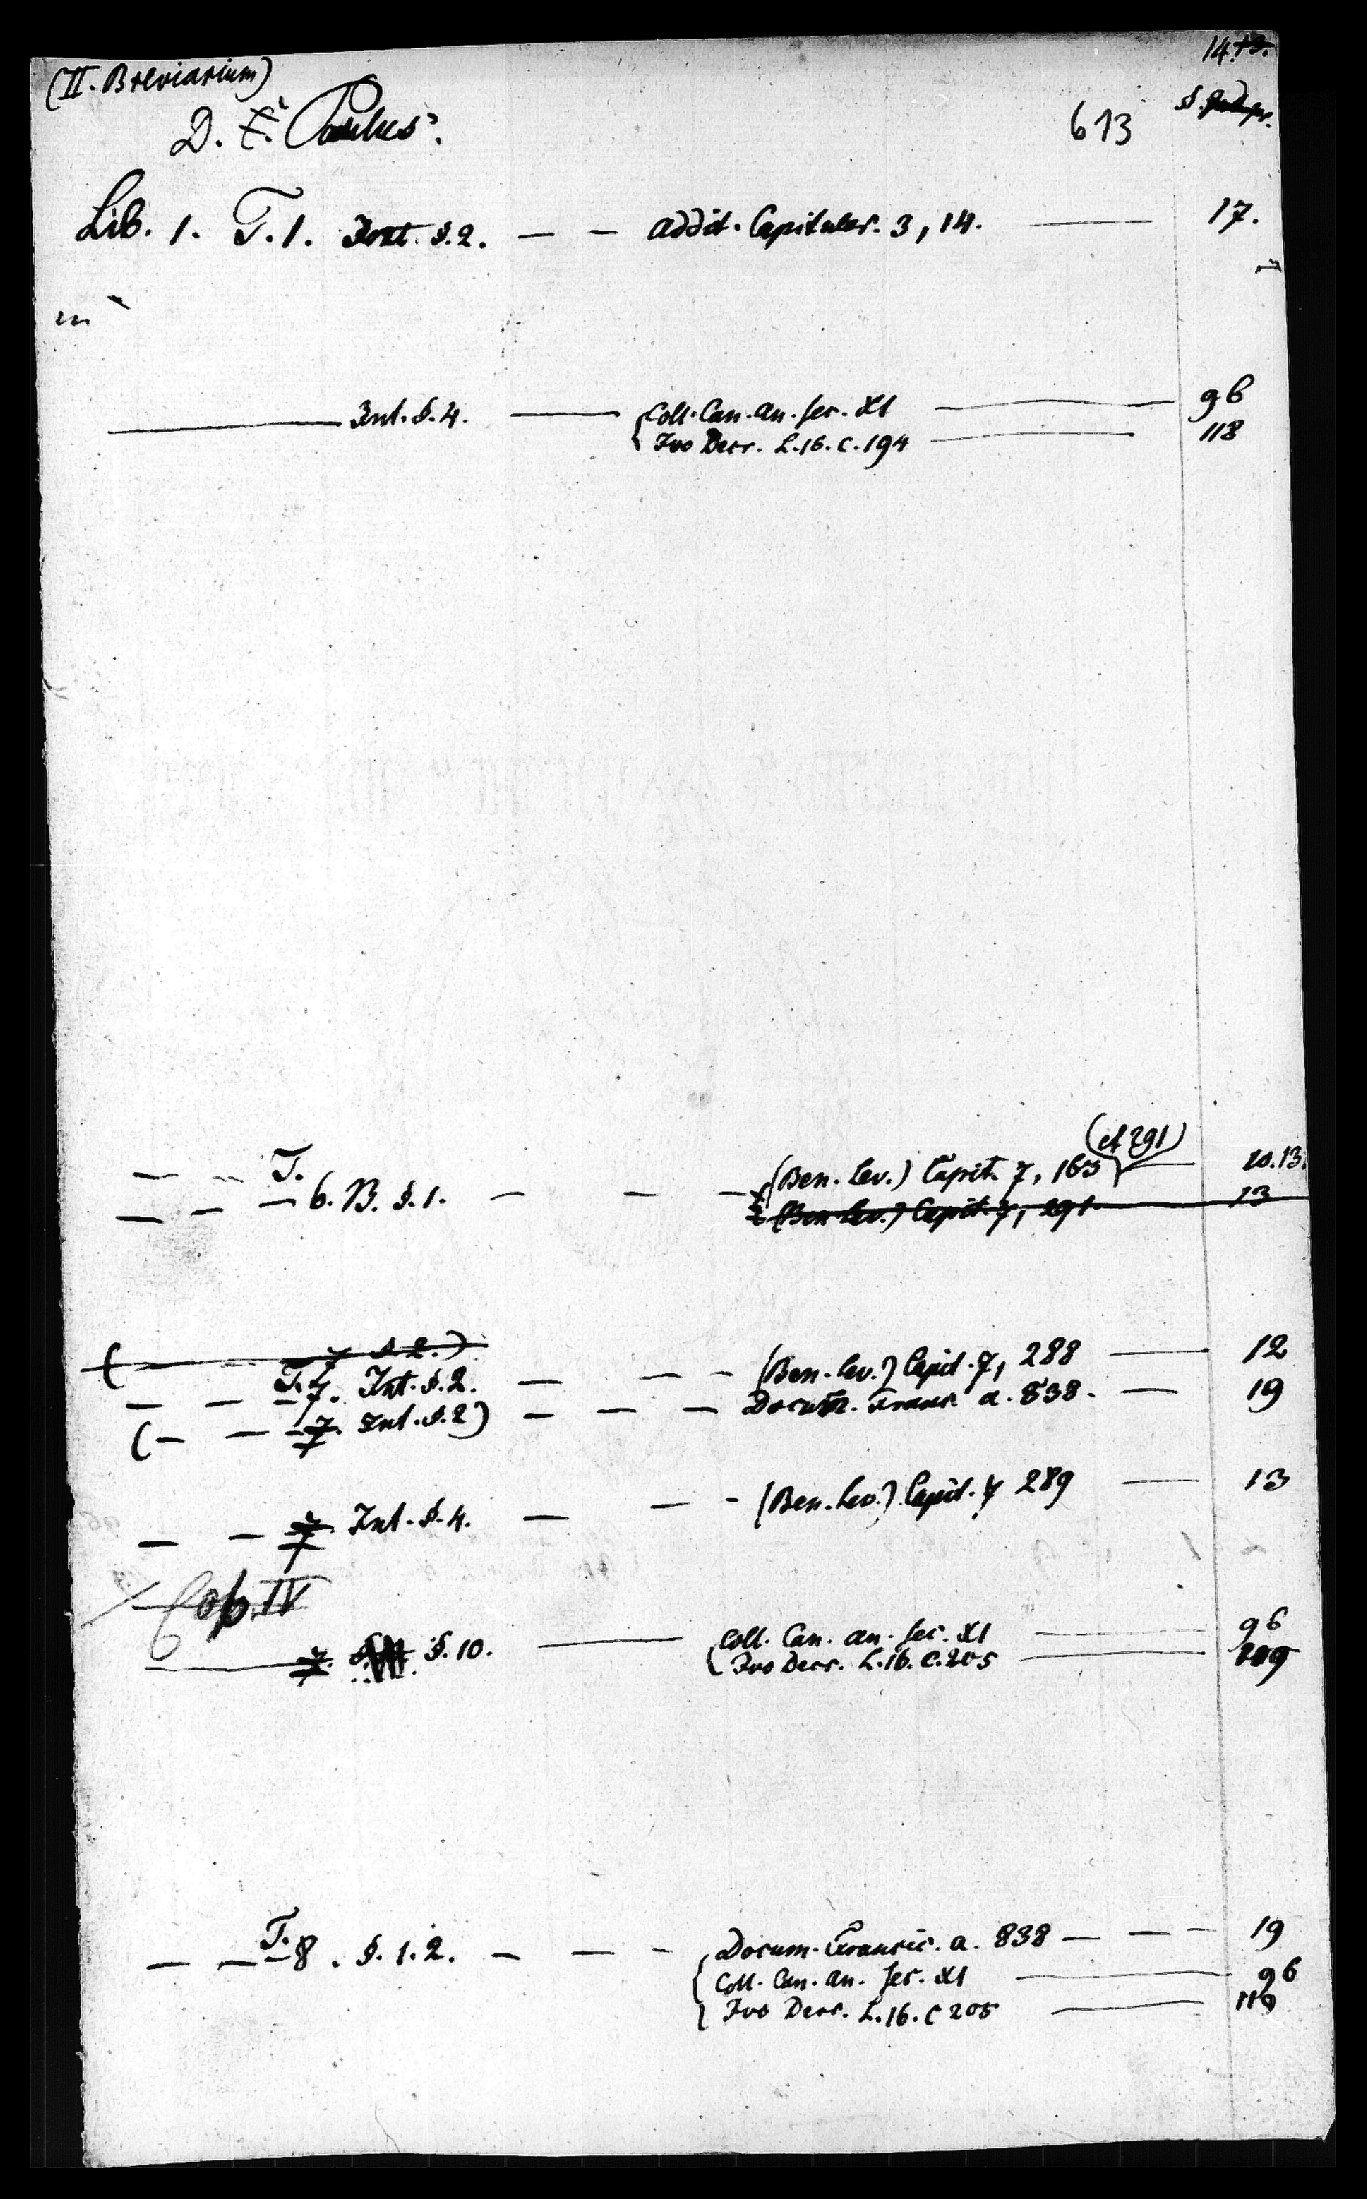 (II. Breviarium)
14.
D. Paulus.
613
Lib. 1. T. 1. Int. §. 2. — — addit. Capitular. 3, 14. — 17.
— Int. §. 4. — Coll. Can. an. sec. XI — 96
Ivo Decr. L. 16. c. 194 — 118
(et 291)
— — — T. 6. B. §. 1. — — — (Ben. Lev.) Capit. 7, 163 — 10. 13.
(Ben. Lev.) Capit. 7, 291 — 13
( — 7 §. 2.)
— — T. 7. Int. §. 2. — — — (Ben. Lev.) Capit. 7, 288 — 12
( — — 7. Int. §. 2) — — — Docum. Franc. a. 838. — 19
— — 7 Int. §. 4. — — - (Ben. Lev.) Capit. 7 289 — 13
IV
— 7. §. 10. — Coll. Can. an. sec. XI — 96
Ivo Decr. L. 16. C. 205
— — T. 8. §. 1. 2. — — - Docum. Francic. a. 838 — — - 19
Coll. Can. an. sec. XI — 96
Ivo Decr. L. 16. C 205 — 119